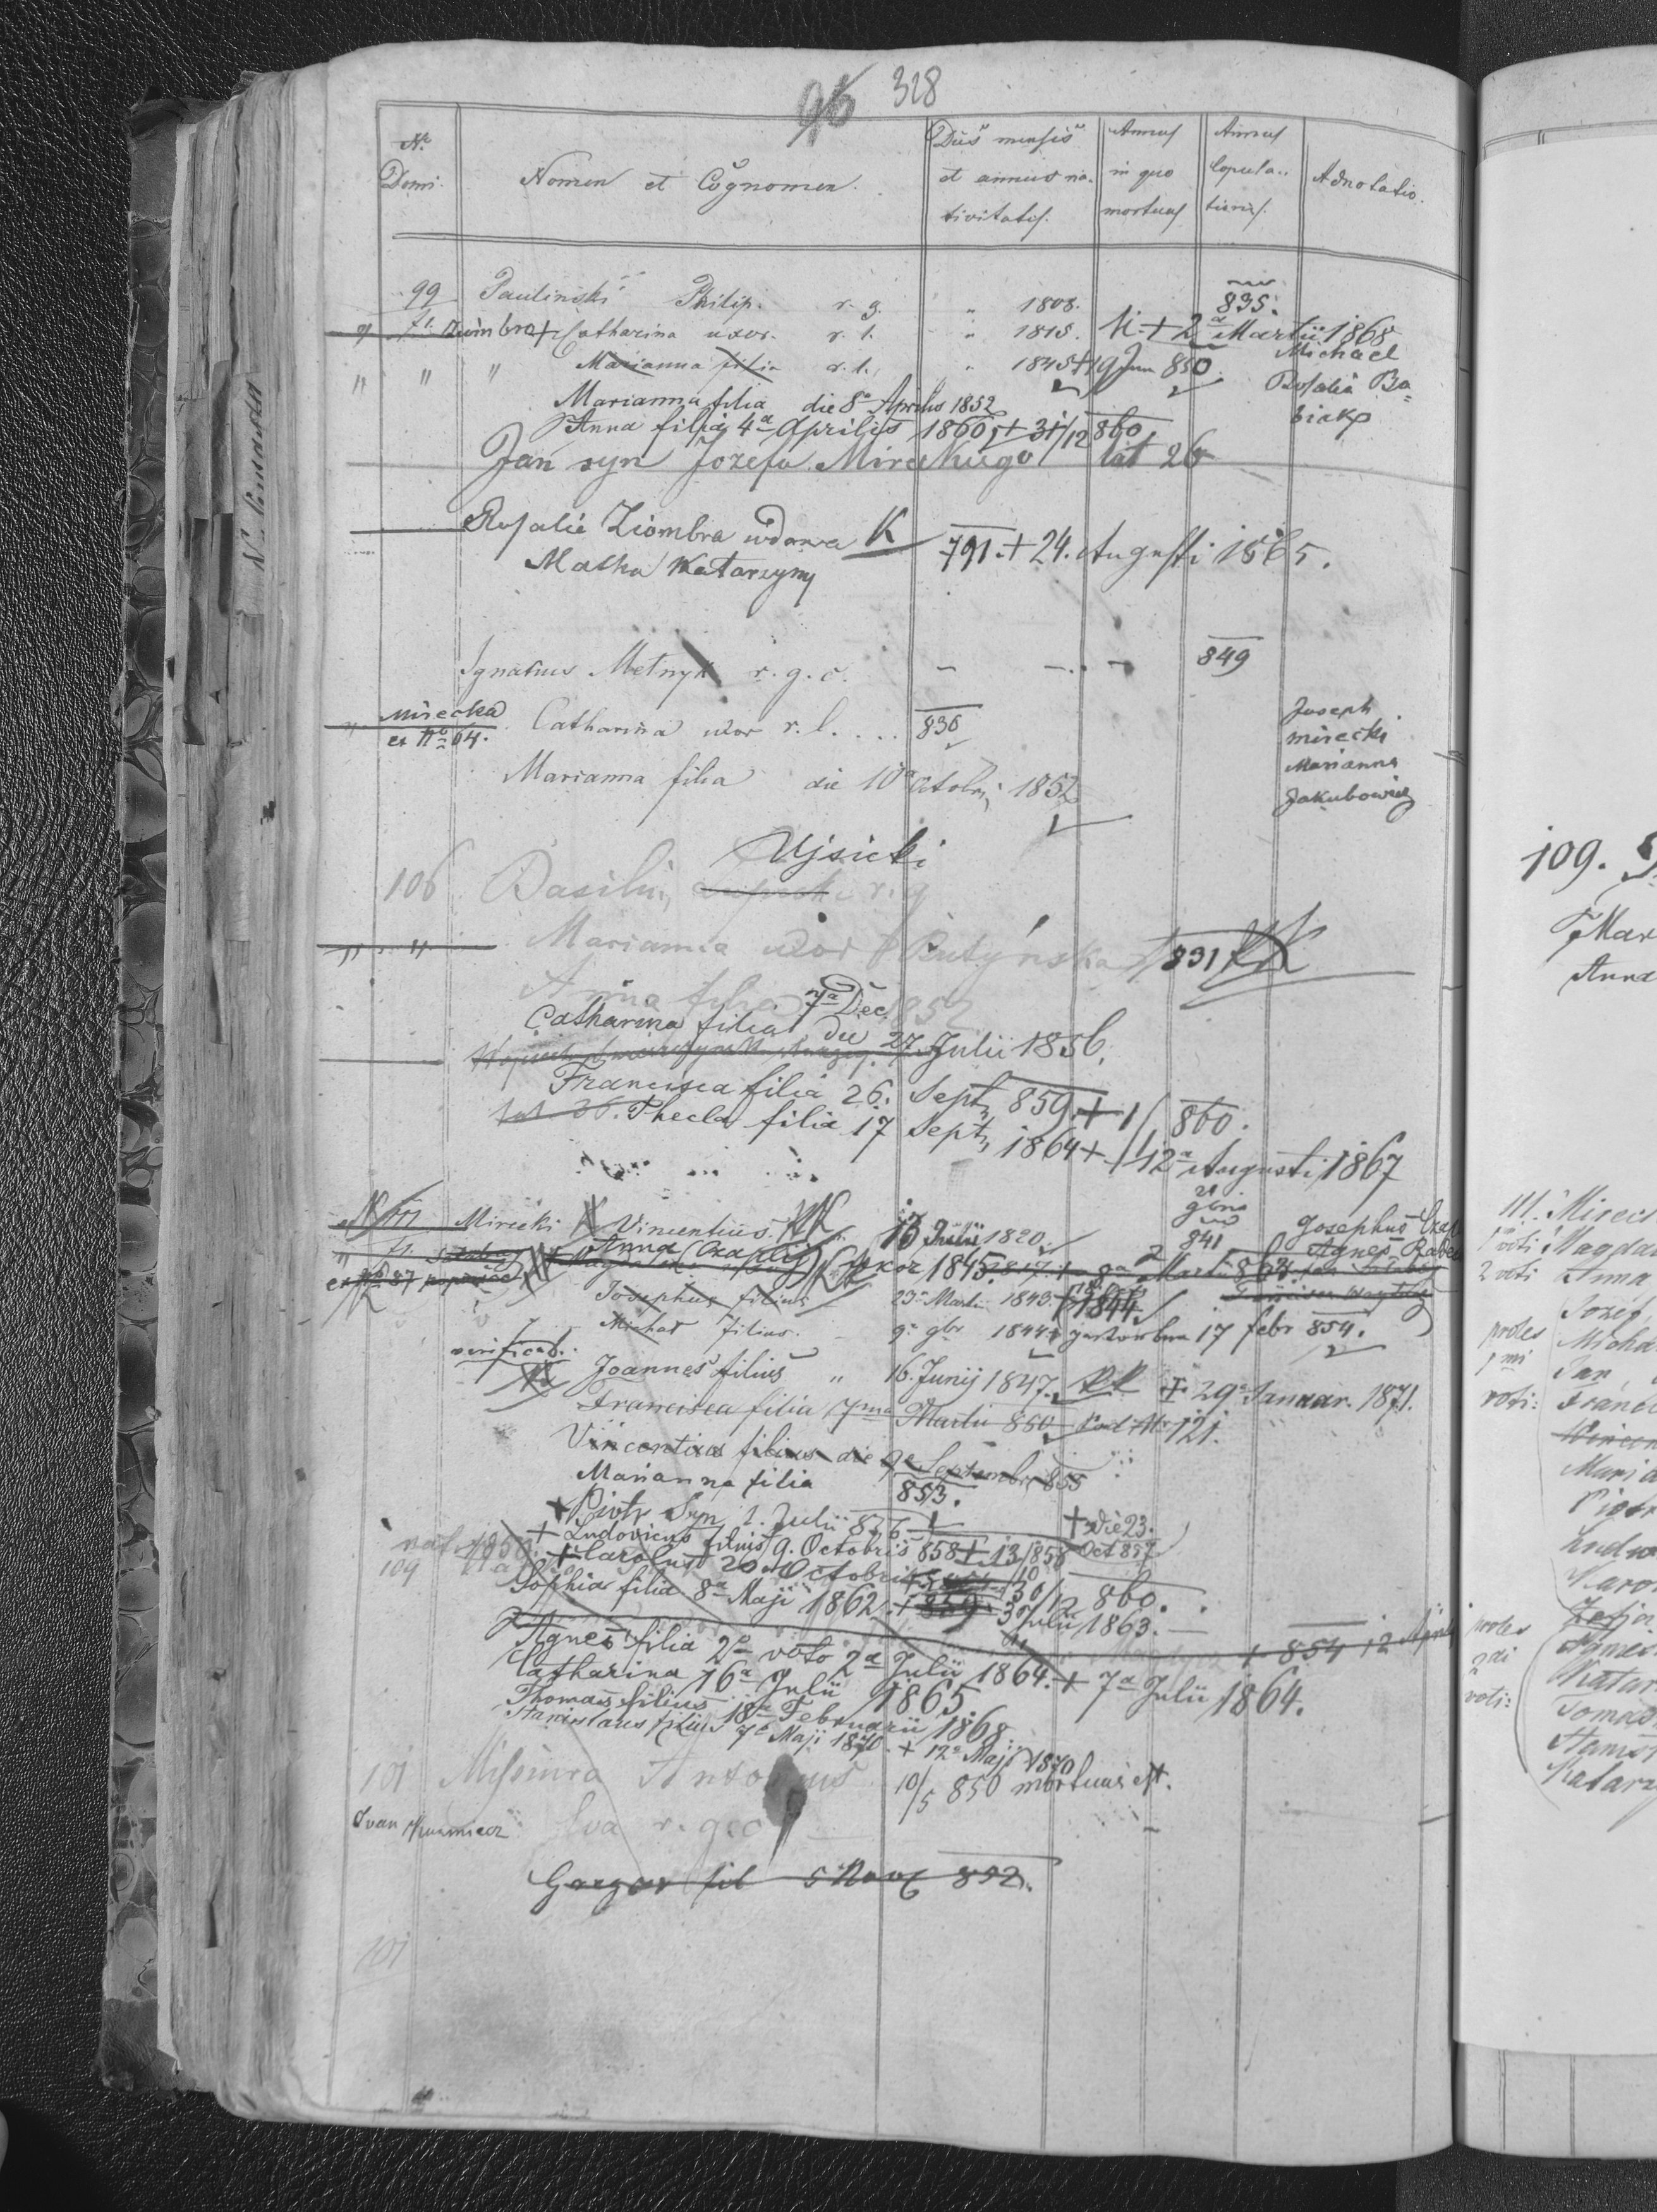 96 328
No Domi. Nomen et Cognomen. Dies mensis et annus nativitatis. Annus in quo mortuus Annus Copulationis. Adnotatio.
99 Paulinski Philip. r. g. " 1808. 835.
Ziombra + Catharina uxor. r. l. " 1815. + 2a Martii 1868
" " " Marianna filia r. l. " 1845 + 19 Jun 850. Michael
Marianna filia die 8a Aprilis 1852 Rosalia Ba=
Anna filia 4a Aprilis 1860, + 31/12 860. biak
Jan syn Jozefa Mireckiego lat 26
Rosalie Ziombra wdowa K 791. + 24. Augusti 1865.
Matka Katarzyny
Ignatius Metnyk r. g. c. – –. – 849
" Mirecka ex No 64. Catharina uxor r. l. .... 830 Joseph mirecki
Marianna filia die 10a Octobris 1852 Marianna Jakubowicz
Ujsicki
106 Basilius r. g
" " Marianna uxor Rutynska 831
Anna filia 7a Dec. 1852
Catharina filia die 27. Julii 1856.
Francisca filia 26. Septr 859. + 1/ 860.
Thecla filia 17 Septr 1864 + 12a Augusti 1867
Mirecki Vincentius 13 Julii 1820. 21 9bris 841 Josephus
Anna 1845. 1817. + 8a Martii Agnes
ex No 87
Josephus filius 23a Martii 1843. 1844
Michał filius. 9a 9br 1844 17 febr 854.
Joannes filius " 16. Junij 1847. + 29a Januar. 1871.
Francisca filia 7ma Martii 850 sub Nr 121.
Vincentius filius die 9a Septembr 855
Marianna filia 853.
+ Piotr Syn 1. Julii 856 + die 23. Oct 857
+ Ludovicus filius 9. Octobris 858 + 13/ 858
109 + Carolus 20 Octobris 859 30/12 860.
Sophia filia 8a Maji 1862. + 3 Julii 1863. –
+ 854 12
Agnes filia 2do voto 2a Julii 1864. + 7a Julii 1864.
Catharina 16a Julii 1865
Thomas filius 18a Februarii 1868.
Stanislaus filius 7a Maji 1870. + 12a Maji 1870
101 Misiura Antonius 10/5 850 mortuus est.
Iwan Eva r. g. c –
Grzegorz fil 5 852.
101
109.
Mar
Anna
111. Mirec
1 voti Magda
2 voti Anna
Jozef,
proles 1mi voti: Micha
Jan,
Franc
Maria
Piotr
Ludw
Karo
Zofja
proles 2di voti: Agnes
Katar
Tomasz
Stanis
Katarz